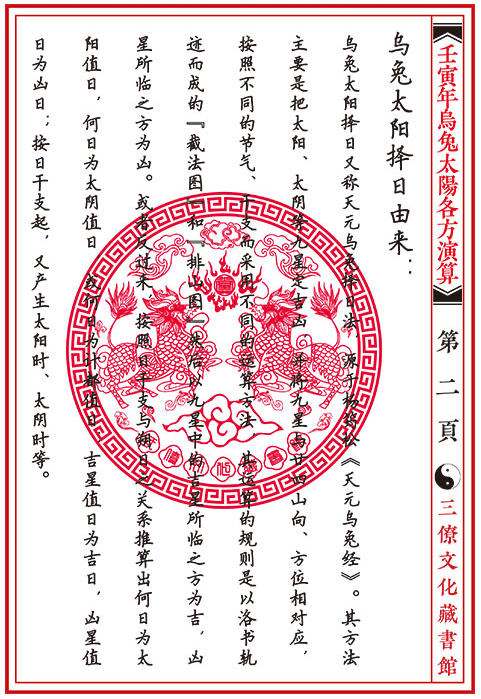 壬寅年烏兔太陽各方演算
第二頁
三僚文化藏書館
乌兔太阳择日由来：
乌兔太阳择日又称天元乌兔择日法，源于杨筠松《天元乌兔经》。其方法
主要是把太阳、太阴等九星定吉凶，并将九星与廿四山向、方位相对应，
按照不同的节气、干支而采用不同的运算方法，其运算的规则是以洛书轨
迹而成的『截法图』和『排山图』然后以九星中的吉星所临之方为吉，凶
星所临之方为凶。或者反过来，按照日干支与朔日之关系推算出何日为太
阳值日，何日为太阴值日，或何日为计都值日，吉星值日为吉日，凶星值
日为凶日；按日干支起，又产生太阳时、太阴时等。